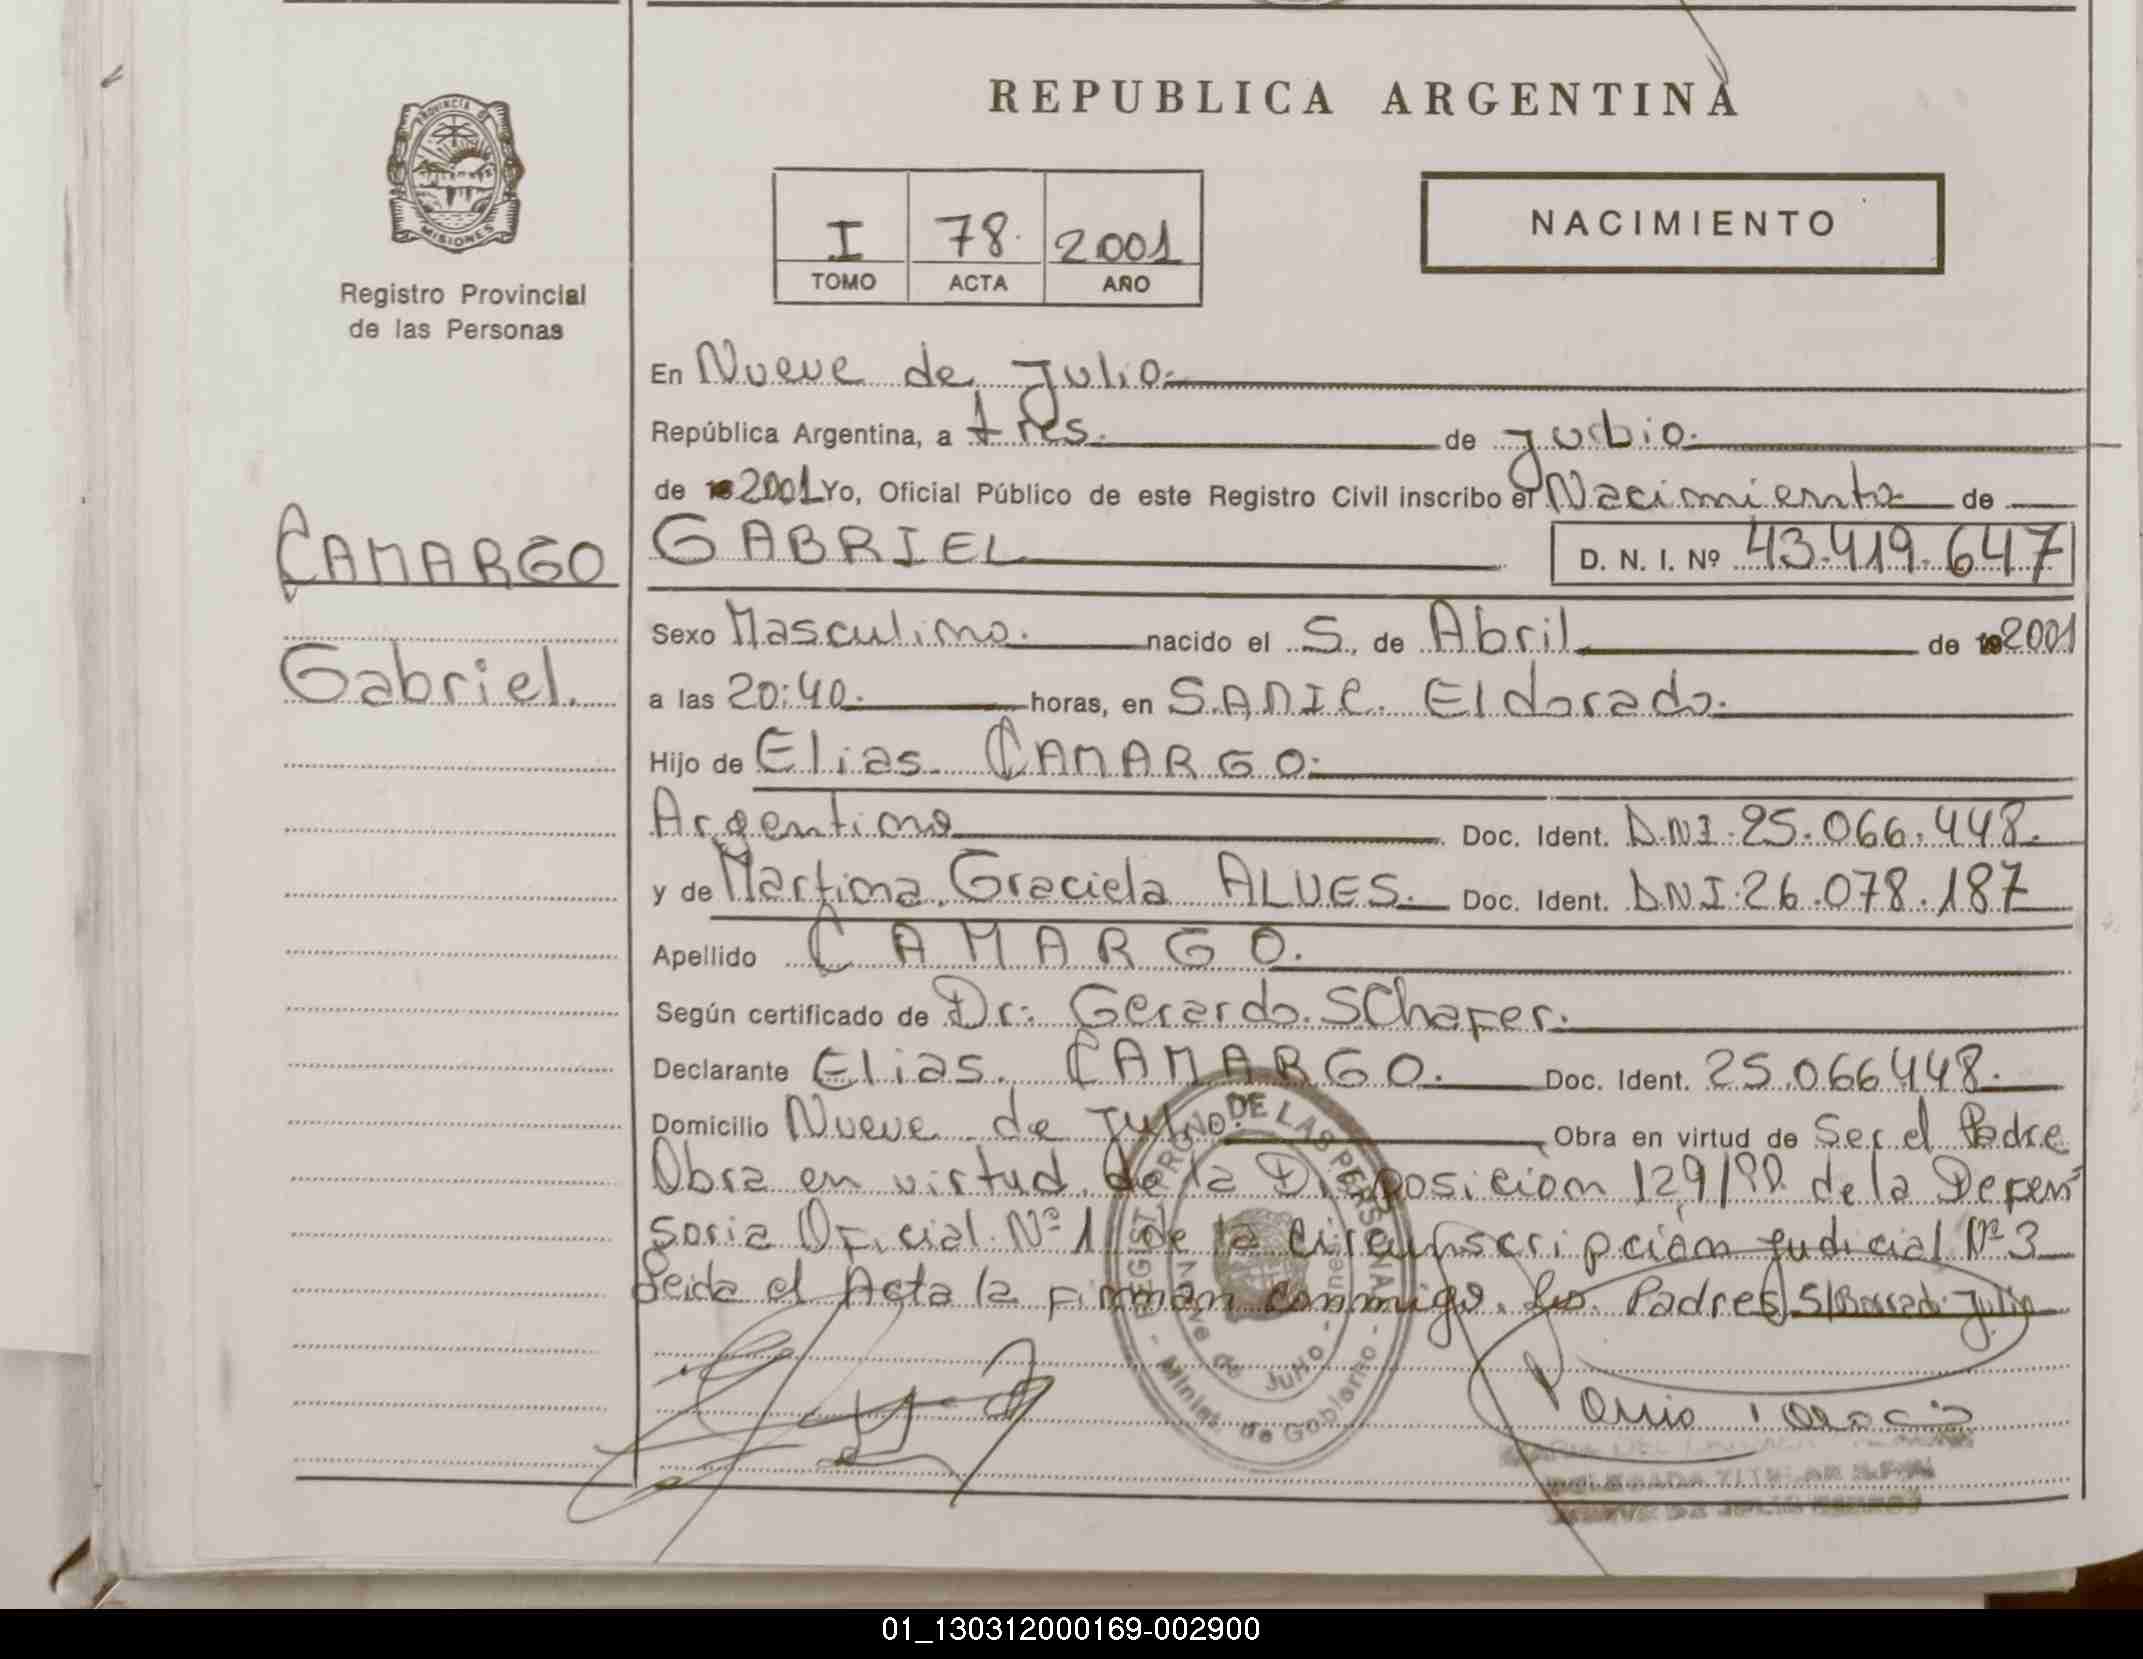 REPUBLICA ARGENTINA
PROVINCIA DE
MISIONES
Registro Provincial
de las Personas
I 78. 2001
TOMO ACTA AÑO
NACIMIENTO
En Nueve de Julio.
República Argentina, a tres. de Julio.
de 2001 Yo, Oficial Público de este Registro Civil inscribo el Nacimiento de
CAMARGO
GABRIEL D. N. I. Nº 43.419.647
Sexo Masculino. nacido el 5. de Abril de 2001
Gabriel.
a las 20:40. horas, en SAMIC. Eldorado.
Hijo de Elias CAMARGO.
Argentino Doc. Ident. D.N.I. 25.066.448.
y de Martina Graciela ALVES. Doc. Ident. DNI 26.078.187
Apellido CAMARGO.
Según certificado de Dr. Gerardo SChafer.
Declarante Elias CAMARGO. Doc. Ident. 25.066448.
Domicilio Nueve de Julio. Obra en virtud de Ser el Padre
Obra en virtud de la Disposicion 129/ de la Defen
soria Oficial Nº 1 de la circunscripción judicial Nº 3
Leida el Acta la firman conmigo los Padres S/Borrado Julio
REGIST. PROV. DE LAS PERSONAS
Nueve de Julio - Mnes
- Minist. de Gobierno -
01_130312000169-002900